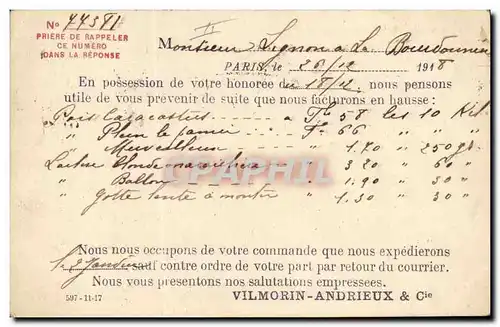 No 77381
PRIÈRE DE RAPPELER
CE NUMÉRO
DANS LA RÉPONSE
Monsieur Lignon a La Bourdonnaie
PARIS, le 26/12 1918
En possession de votre honorée du 18/12 nous pensons
utile de vous prévenir de suite que nous facturons en hausse :
Pois Caractacus a Frs 58 les 10 Kil
" Plein le panier Frs 66 " " "
" Merveilleux 1.70 " 250 gr.
Laitue blonde 3.20 " 60 "
" Ballon " 1.90 " 30 "
" Gotte lente à monter 1.30 " 30 "
DELCAMPHILA.COM
Nous nous occupons de votre commande que nous expédierons
sauf contre ordre de votre part par retour du courrier.
Nous vous présentons nos salutations empressées.
597-11-17 VILMORIN-ANDRIEUX & Cie